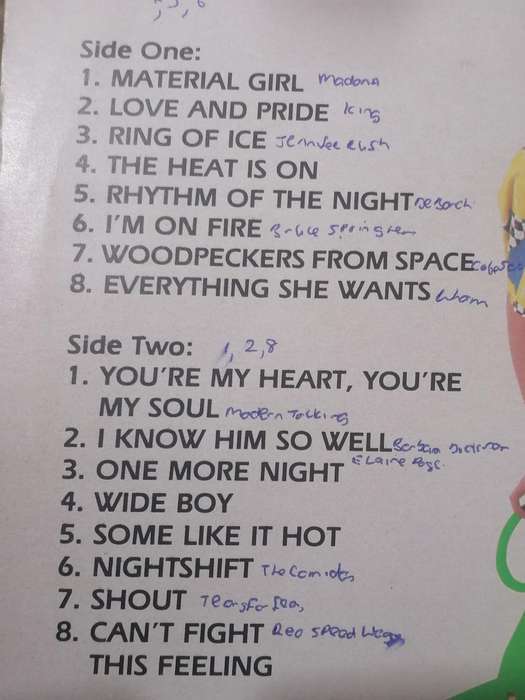 , 5, 6
Side One:
1. MATERIAL GIRL Madona
2. LOVE AND PRIDE King
3. RING OF ICE Jennfee Rush
4. THE HEAT IS ON
5. RHYTHM OF THE NIGHT DeBarch
6. I'M ON FIRE Bruce Springteen
7. WOODPECKERS FROM SPACE
8. EVERYTHING SHE WANTS Wham
Side Two: 1, 2, 8
1. YOU'RE MY HEART, YOU'RE
MY SOUL Modern Tocking
2. I KNOW HIM SO WELL
Elaine Page
3. ONE MORE NIGHT
4. WIDE BOY
5. SOME LIKE IT HOT
6. NIGHTSHIFT The Comidos
7. SHOUT Tears for Fears
8. CAN'T FIGHT Reo Speed Wagon
THIS FEELING